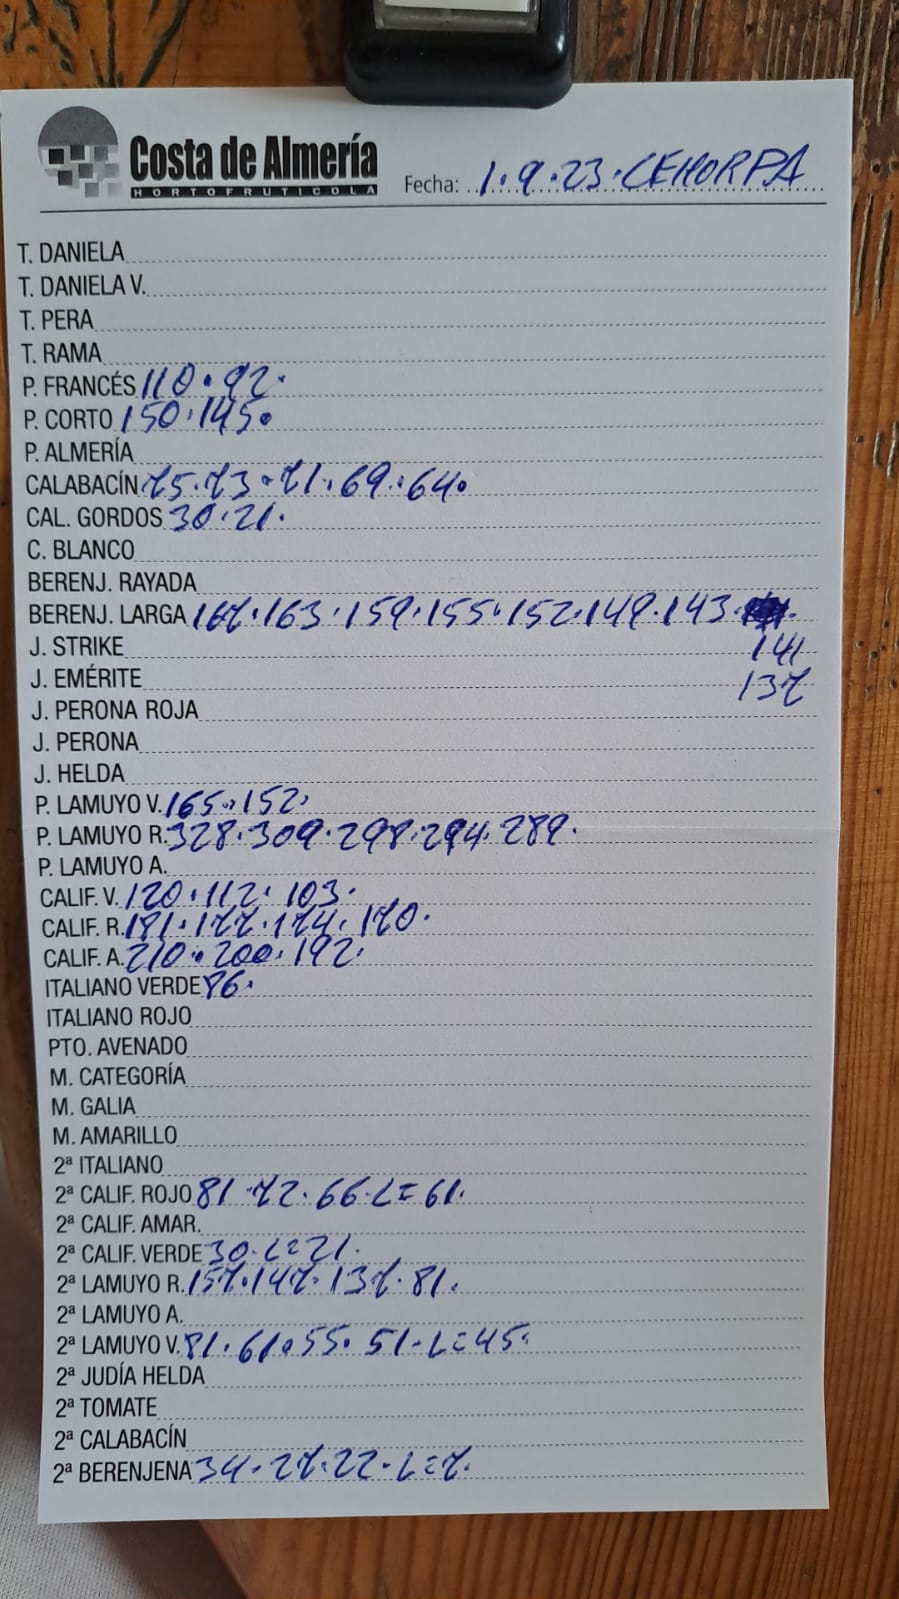 Costa de Almería
HORTOFRUTICOLA
Fecha: 1.9.23.CEHORPA
T. DANIELA
T. DANIELA V.
T. PERA
T. RAMA
P. FRANCÉS 110.92.
P. CORTO 150.145.
P. ALMERÍA
CALABACÍN 75.73.71.69.64.
CAL. GORDOS 30.21.
C. BLANCO
BERENJ. RAYADA
BERENJ. LARGA 167.163.159.155.152.149.143.
J. STRIKE 141
J. EMÉRITE 137
J. PERONA ROJA
J. PERONA
J. HELDA
P. LAMUYO V. 165.152.
P. LAMUYO R. 328.309.298.294.289.
P. LAMUYO A.
CALIF. V. 120.112.103.
CALIF. R. 181.177.174.170.
CALIF. A. 210.200.192.
ITALIANO VERDE 86.
ITALIANO ROJO
PTO. AVENADO
M. CATEGORÍA
M. GALIA
M. AMARILLO
2ª ITALIANO
2ª CALIF. ROJO 81.72.66.L=61.
2ª CALIF. AMAR.
2ª CALIF. VERDE 30.L=21.
2ª LAMUYO R. 157.147.137.81.
2ª LAMUYO A.
2ª LAMUYO V. 81.61.55.51.L=45.
2ª JUDÍA HELDA
2ª TOMATE
2ª CALABACÍN
2ª BERENJENA 34.27.22.L=7.